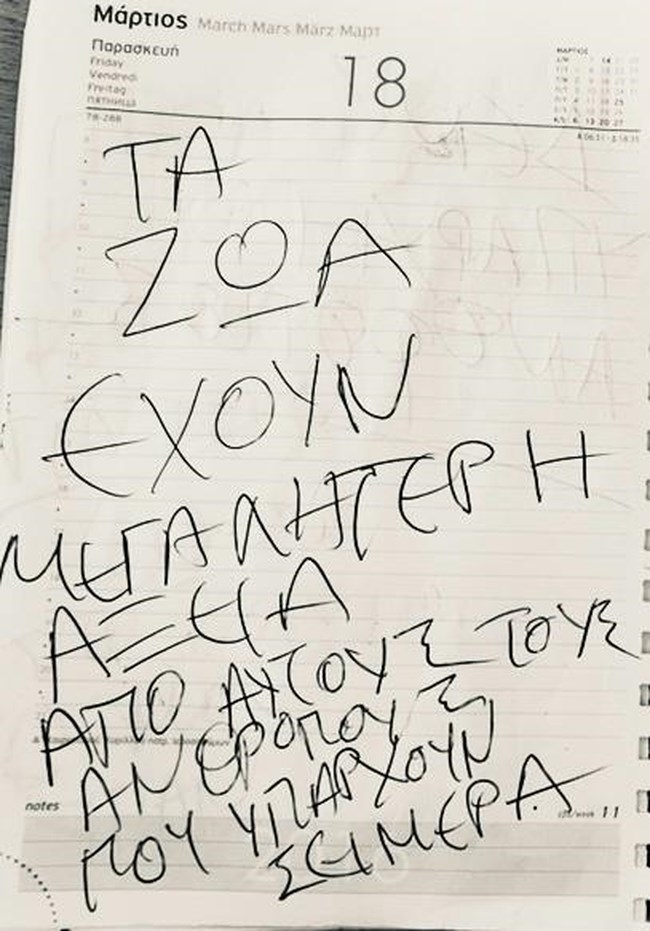 Μάρτιος March Mars März Март
Παρασκευή
Friday
Vendredi
Freitag
ПЯТНИЦА
18
78-288
ΜΑΡΤΙΟΣ
ΤΑ
ΖΟΑ
ΕΧΟΥΝ
ΜΕΓΑΛΗΤΕΡΗ
ΑΞΕΙΑ
ΑΠΟ ΑΥΤΟΥΣ ΤΟΥΣ
ΑΝΘΡΟΠΟΥΣ
ΠΟΥ ΥΠΑΡΧΟΥΝ
ΣΕΙΜΕΡΑ
notes
11